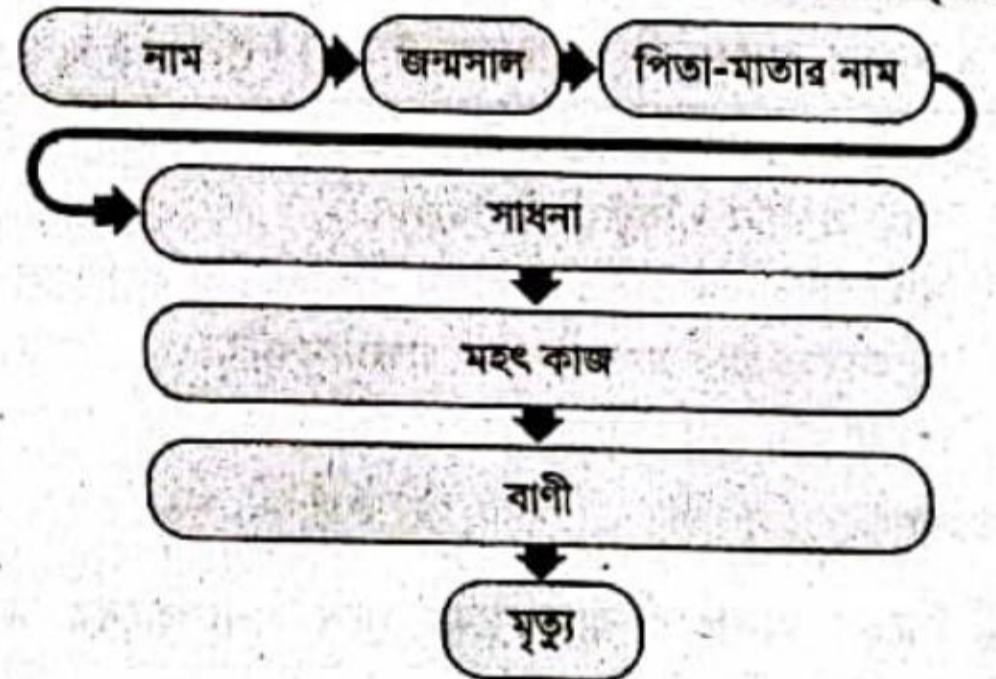 নাম জন্মসাল পিতা-মাতার নাম
সাধনা
মহৎ কাজ
বাণী
মৃত্যু